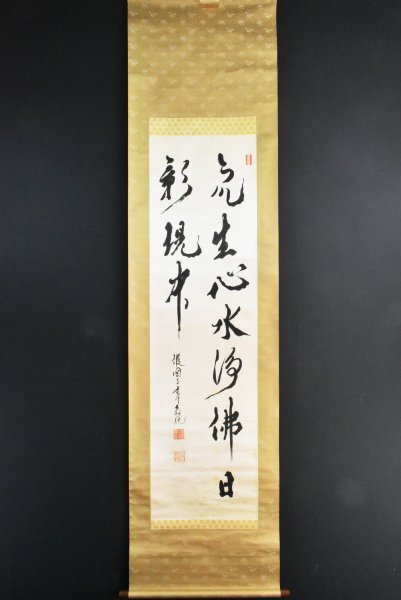 衆生心水浄佛日
影現中
護國